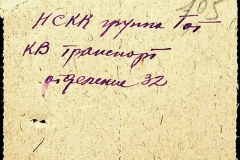 105
НСКВ группа Гот
КВ транспорт
отделение 32